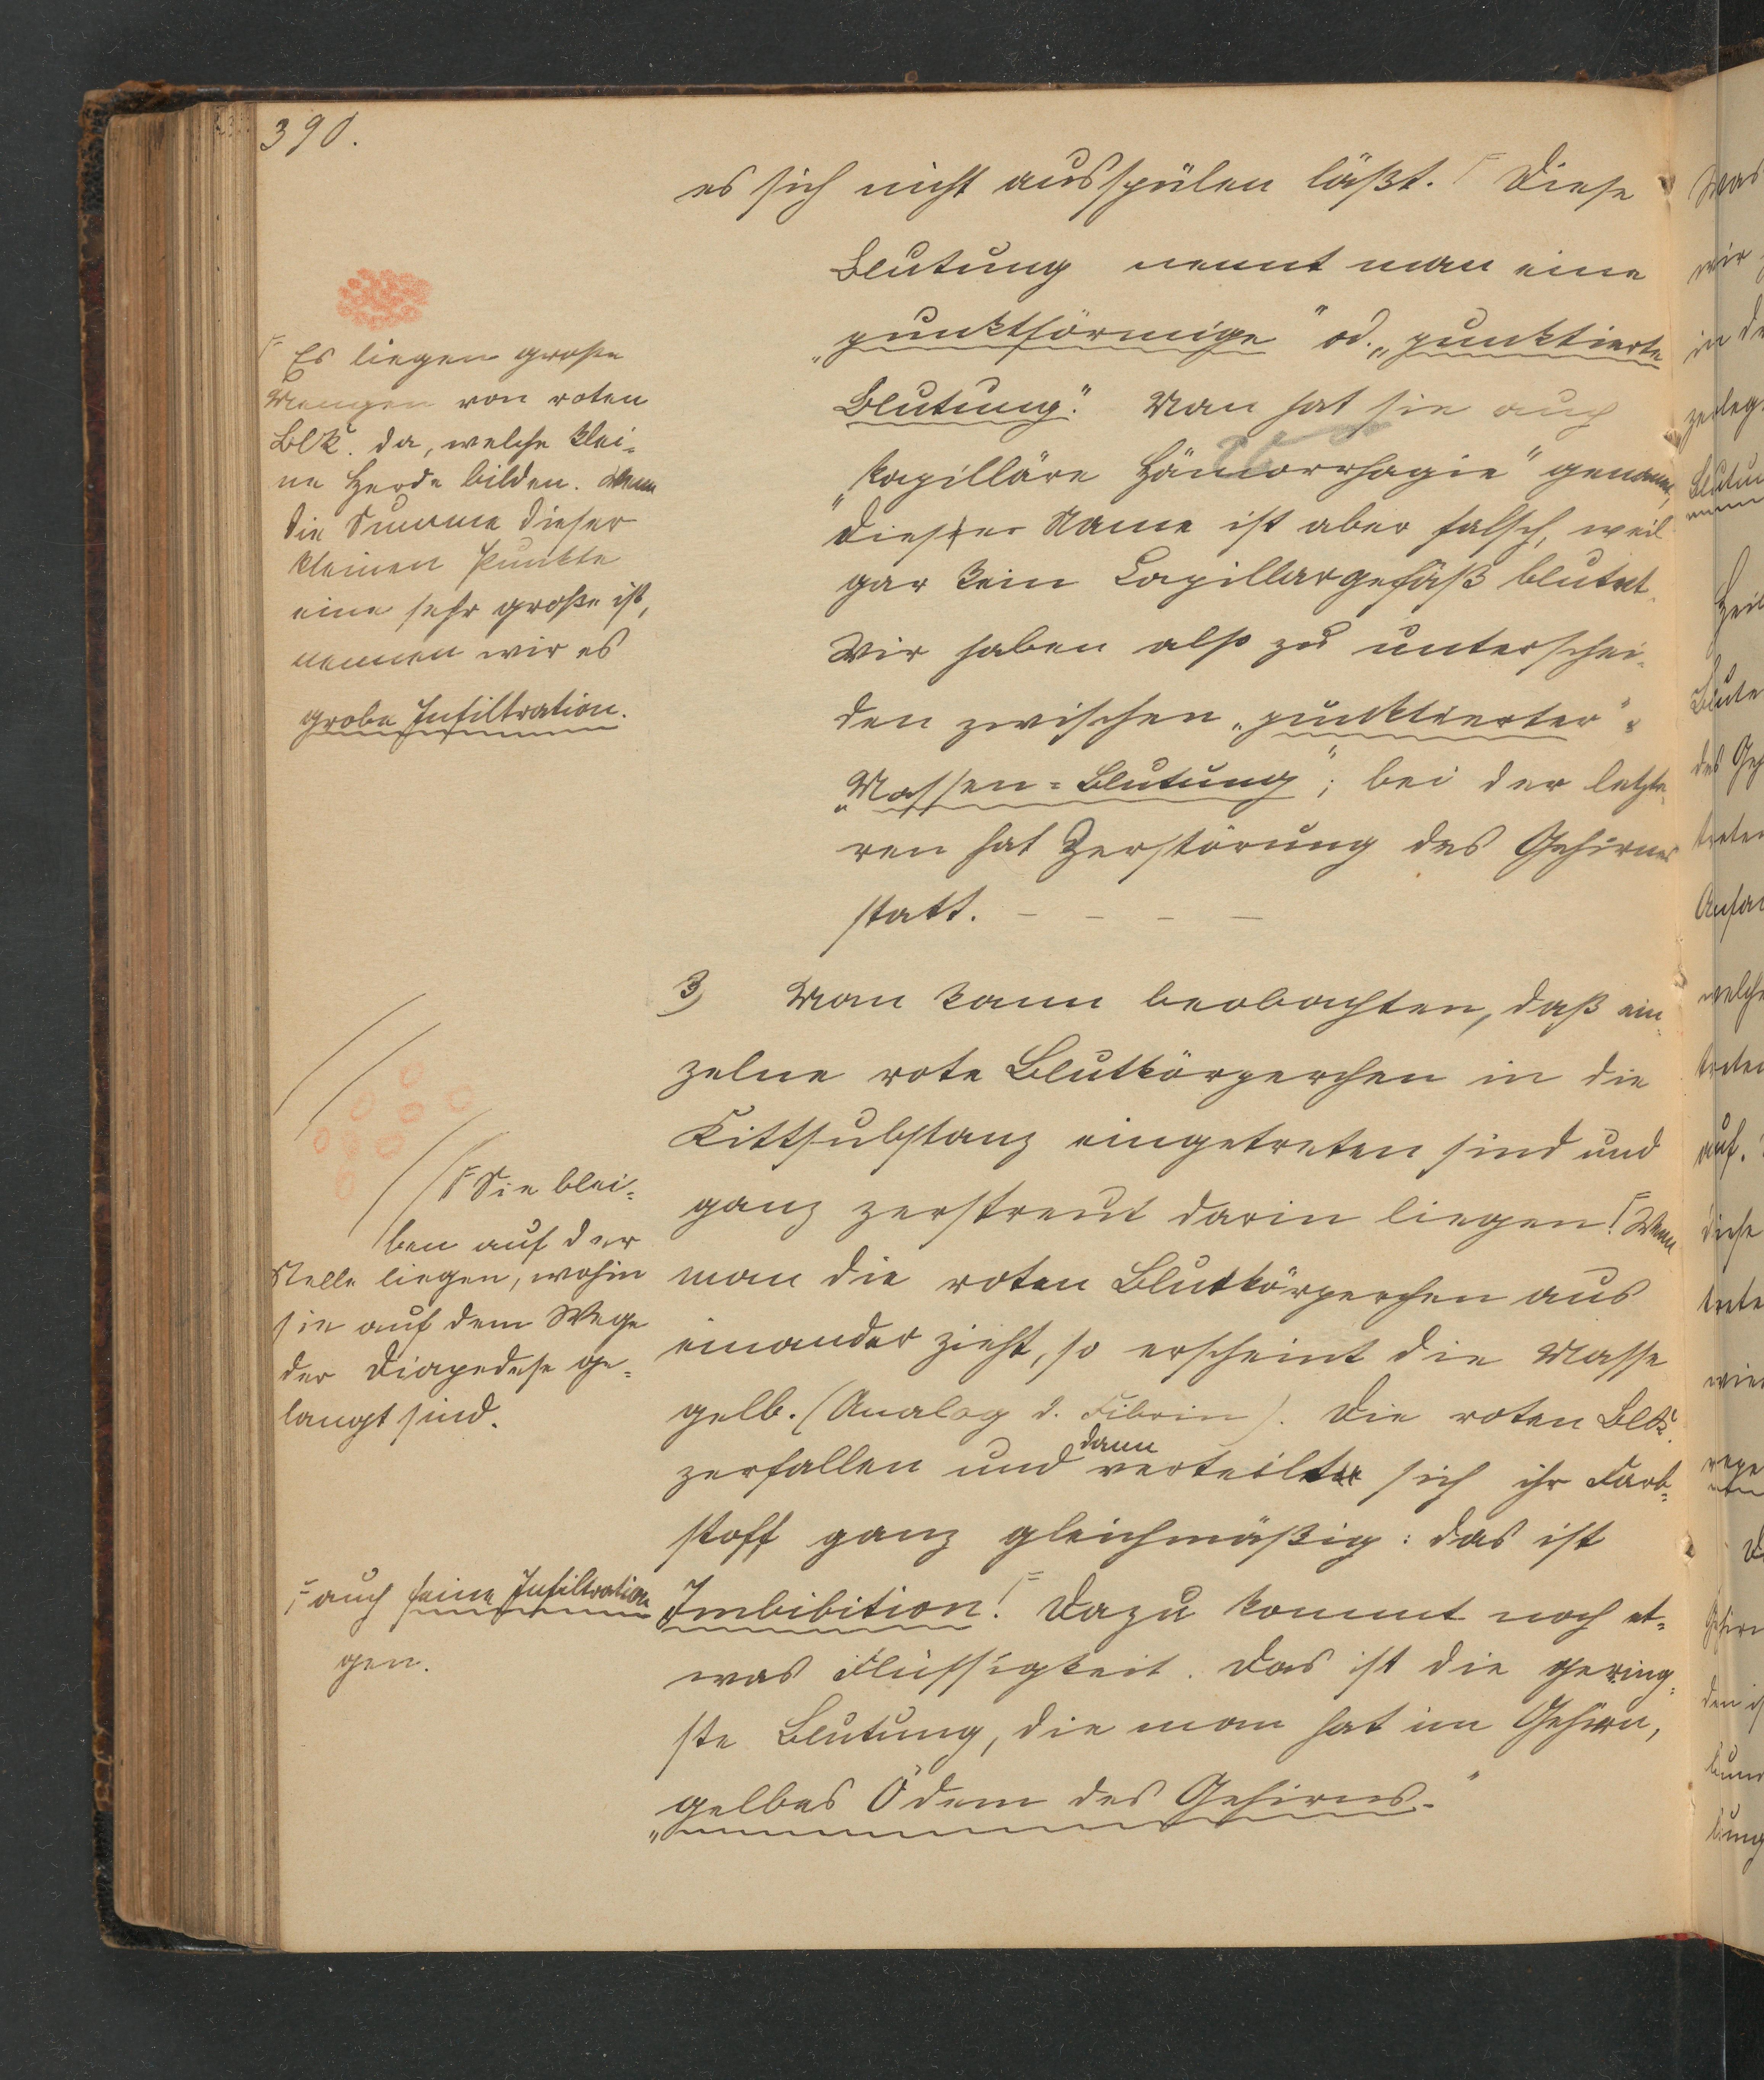 390.
es sich nicht ausspülen läßt. Γ Diese
Blutung nennt man eine
„punktförmige" od. „punktierte
Blutung." Man hat sie auch
„kapilläre Hämorrhagie" genannt,
dieser Name ist aber falsch, weil
gar kein Capillargefäß blutet.
Wir haben also zu unterschei-
den zwischen „punktierter" u.
„Massen=Blutung"; bei der letzte-
ren hat Zerstörung des Gehirnes
statt. – – – –
Γ Es liegen große
Mengen von roten
Blk. da, welche klei-
ne Herde bilden. Wenn
die Summe dieser
kleinen Punkte
eine sehr große ist,
nennen wir es
grobe Infiltration.
3) Man kann beobachten, daß ein-
zelne rote Blutkörperchen in die
Kittsubstanz eingetreten sind und
ganz zerstreut darin liegen! Γ Wenn
man die roten Blutkörperchen aus
einander zieht, so erscheint die Masse
gelb. (Analog d. Fibrin). Die roten Blk.
zerfallen und dann verteilt sich ihr Farb=
stoff ganz gleichmäßig: das ist
Imbibition! Γ Dazu kommt noch et=
was Flüssigkeit. Das ist die gering=
ste Blutung, die man hat im Gehirn,
„gelbes Ödem des Gehirns."
Γ Sie blei=
ben auf der
Stelle liegen, wohin
sie auf dem Wege
der Diapedese ge=
langt sind.
Γ auch feine Infiltration
gen.